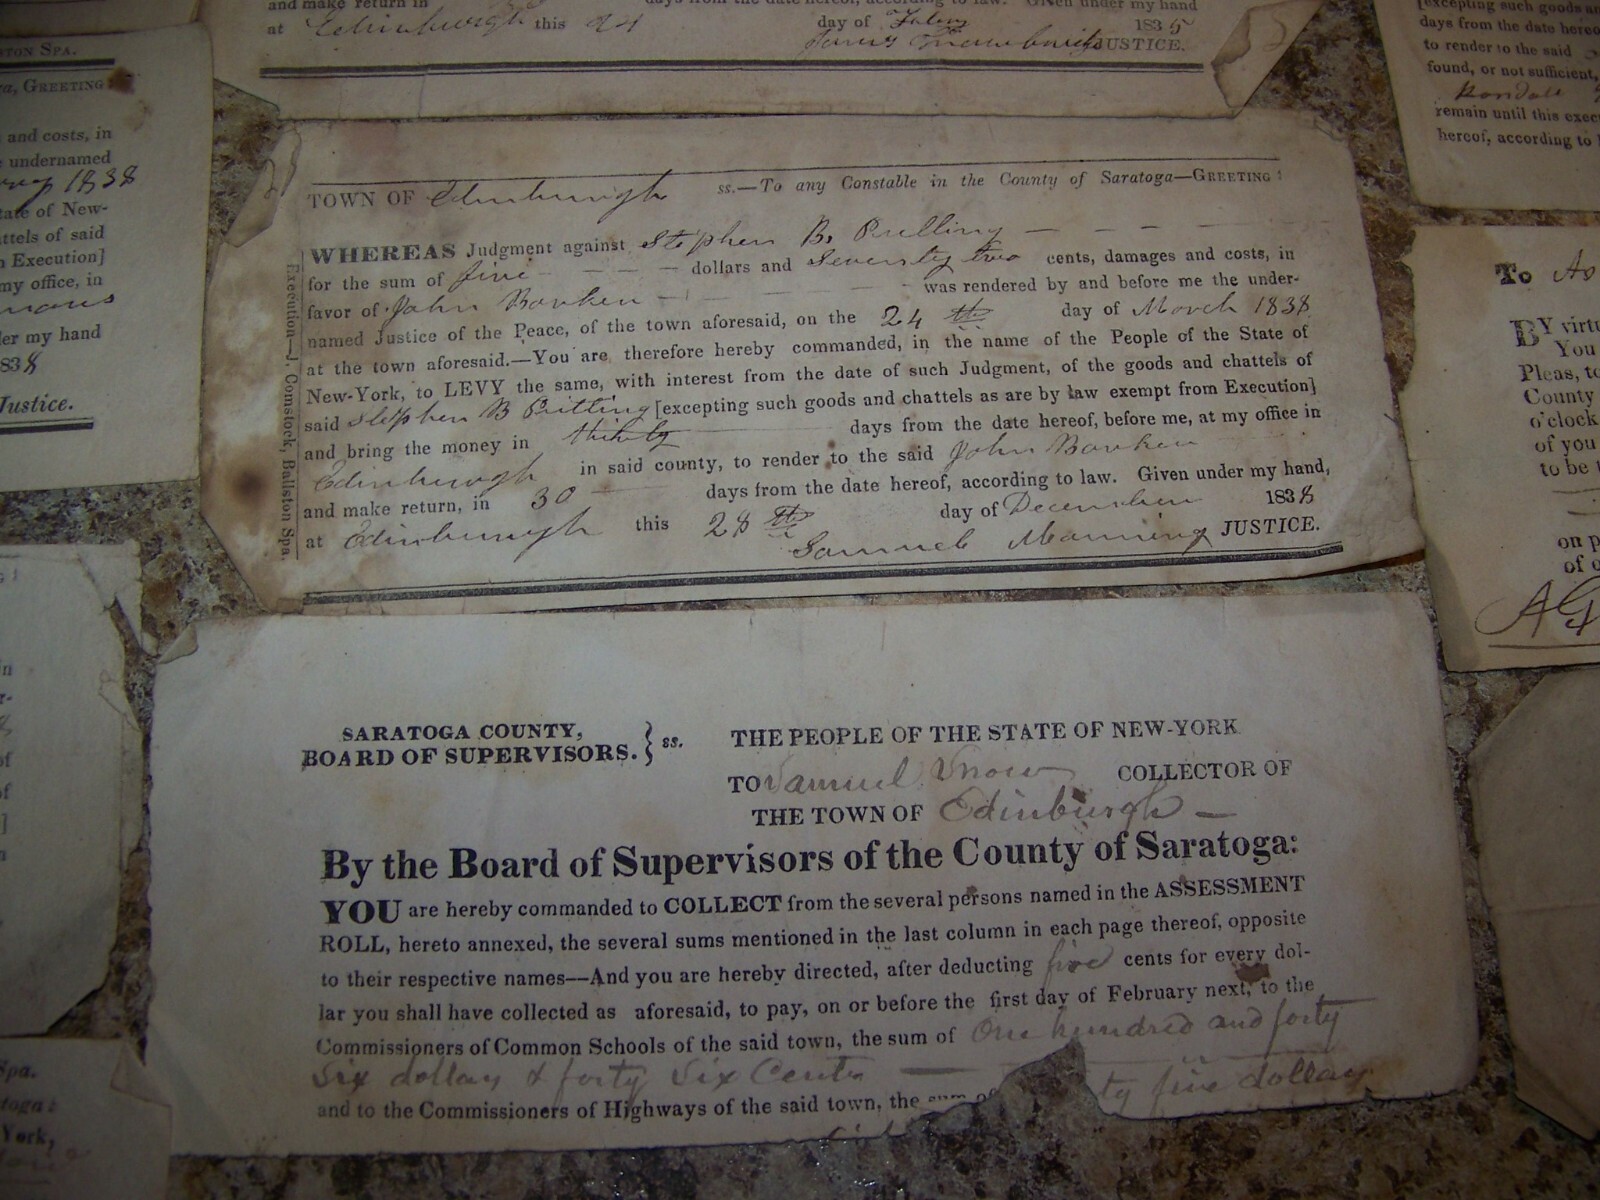 and make return in days from the date hereof, according to law. Given under my hand
at Edinburgh this 24 day of 1835
JUSTICE.
STON SPA.
GREETING:
and costs, in
undernamed
1838
tate of New-
ttels of said
n Execution]
my office, in
der my hand
838
Justice.
[excepting such goods an
days from the date hereo
to render to the said
found, or not sufficient,
remain until this exec
hereof, according to
TOWN OF Edinburgh ss.—To any Constable in the County of Saratoga—GREETING:
WHEREAS Judgment against Stephen B. Pulling
for the sum of five dollars and Seventy two cents, damages and costs, in
favor of John Barker was rendered by and before me the under-
named Justice of the Peace, of the town aforesaid, on the 24 th day of March 1838
at the town aforesaid.—You are therefore hereby commanded, in the name of the People of the State of
New-York, to LEVY the same, with interest from the date of such Judgment, of the goods and chattels of
said Stephen B [excepting such goods and chattels as are by law exempt from Execution]
and bring the money in thirty days from the date hereof, before me, at my office in
Edinburgh in said county, to render to the said John Barker
and make return, in 30 days from the date hereof, according to law. Given under my hand,
at Edinburgh this 28 th day of December 1838
Samuel Manning JUSTICE.
Execution—J. Comstock, Ballston Spa.
To
BY virtu
You
Pleas, to
County
o'clock
of you
to be
on p
of
SARATOGA COUNTY,
BOARD OF SUPERVISORS. } ss.
THE PEOPLE OF THE STATE OF NEW-YORK
TO Samuel Snow COLLECTOR OF
THE TOWN OF Edinburgh
By the Board of Supervisors of the County of Saratoga:
YOU are hereby commanded to COLLECT from the several persons named in the ASSESSMENT
ROLL, hereto annexed, the several sums mentioned in the last column in each page thereof, opposite
to their respective names—And you are hereby directed, after deducting five cents for every dol-
lar you shall have collected as aforesaid, to pay, on or before the first day of February next, to the
Commissioners of Common Schools of the said town, the sum of One hundred and forty
Six dollars & forty Six Cents
and to the Commissioners of Highways of the said town, the sum of ty five dollars
Spa.
toga:
York,